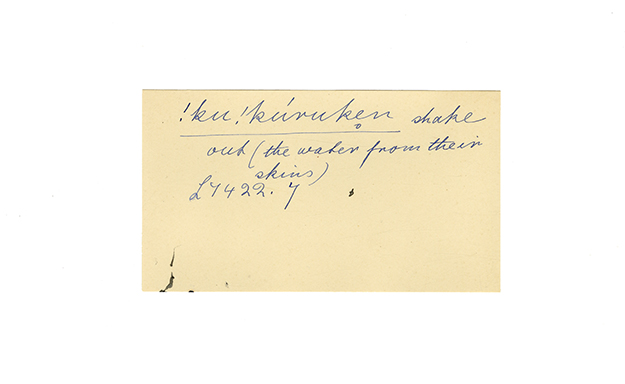 !ku !kúruken̥ shake
out (the water from their
skins)
L 7422. 7